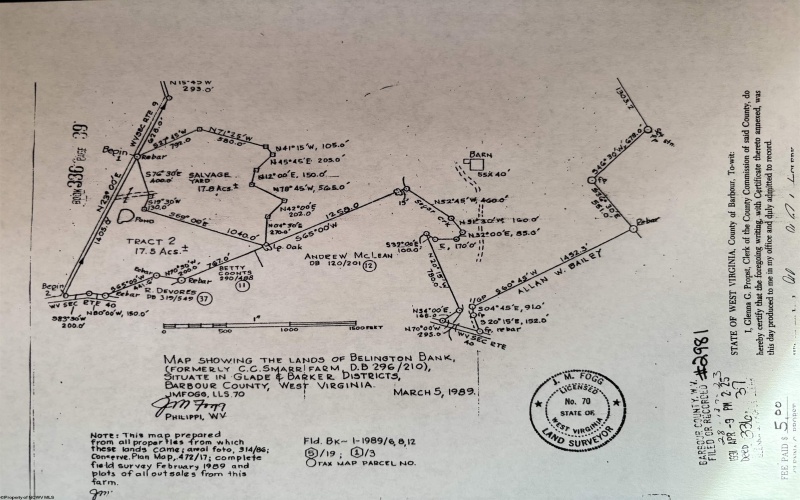 N15°45'W
293.0'
WV SEC RTE 9
628.0'
BOOK 336 PAGE 39
Begin
1
Rebar
S27°45'W
792.0
N71°25'W
580.0'
N41°15'W, 105.0'
N45°45'E 205.0'
N12°00'E, 150.0'
N78°45'W, 565.0'
N42°00'E
202.0'
N04°30'E
270.0'
S76°30'E
400.0'
SALVAGE
YARD
17.8 Acs.±
S19°30'W
130.0'
POND
S69°00'E
1040.0'
N23°00'E
1405.0'
TRACT 2
17.5 Acs.±
Lp. Oak
S65°00'W
1258.0
15'
Sugar Crk
BARN
55X40'
N52°45'W, 460.0'
N51°30'W, 160.0'
N32°00'E, 85.0'
E, 170.0'
S39°00'E
100.0'
N20°15'W
780.0'
ANDREW MCLEAN
DB 120/201 12
BETTY
COONTS
290/488
11
767.0'
N70°30'W
200.0'
Rebar
Rebar
R. DEVORES
DB 319/549 37
Begin
2
Rebar
WV SEC RTE 40
S23°30'W
200.0'
N80°00'W, 150.0'
1"
0 500 1000 1500 FEET
N34°00'E
165.0'
N70°00'W
295.0'
S04°45'E, 91.0'
S20°15'E, 192.0'
rebar
WV SEC RTE
40
S60°45'W 1492.5'
ALLAN W. BAILEY
Rebar
561.0'
S46°30'W, 678.0'
1303.2
MAP SHOWING THE LANDS OF BELINGTON BANK,
(FORMERLY C.C. SMARR FARM, D.B 296/210),
SITUATE IN GLADE & BARKER DISTRICTS,
BARBOUR COUNTY, WEST VIRGINIA.
MARCH 5, 1989.
JM Fogg
JMFOGG, LLS. 70
PHILIPPI, WV
NOTE: This map prepared
from all properties from which
these lands came; aerial foto, 314/86;
Conserve. Plan Map, 472/17; complete
field survey February 1989 and
plots of all outsales from this
farm.
Fld. Bk- 1-1989/6,8,12
5/19; 1/3
TAX MAP PARCEL NO.
J. M. FOGG
LICENSED
No. 70
STATE OF
WEST VIRGINIA
LAND SURVEYOR
BARBOUR COUNTY, W.V.
FILED OR RECORDED #2981
1991 APR -9 PM 2:25
DEED 336 37
STATE OF WEST VIRGINIA, County of Barbour, To-wit:
I, Glenna G. Propst, Clerk of the County Commission of said County, do
hereby certify that the foregoing writing, with Certificate thereto annexed, was
this day produced to me in my office and duly admitted to record.
FEE PAID $ 5.00
©Property of NCWV MLS